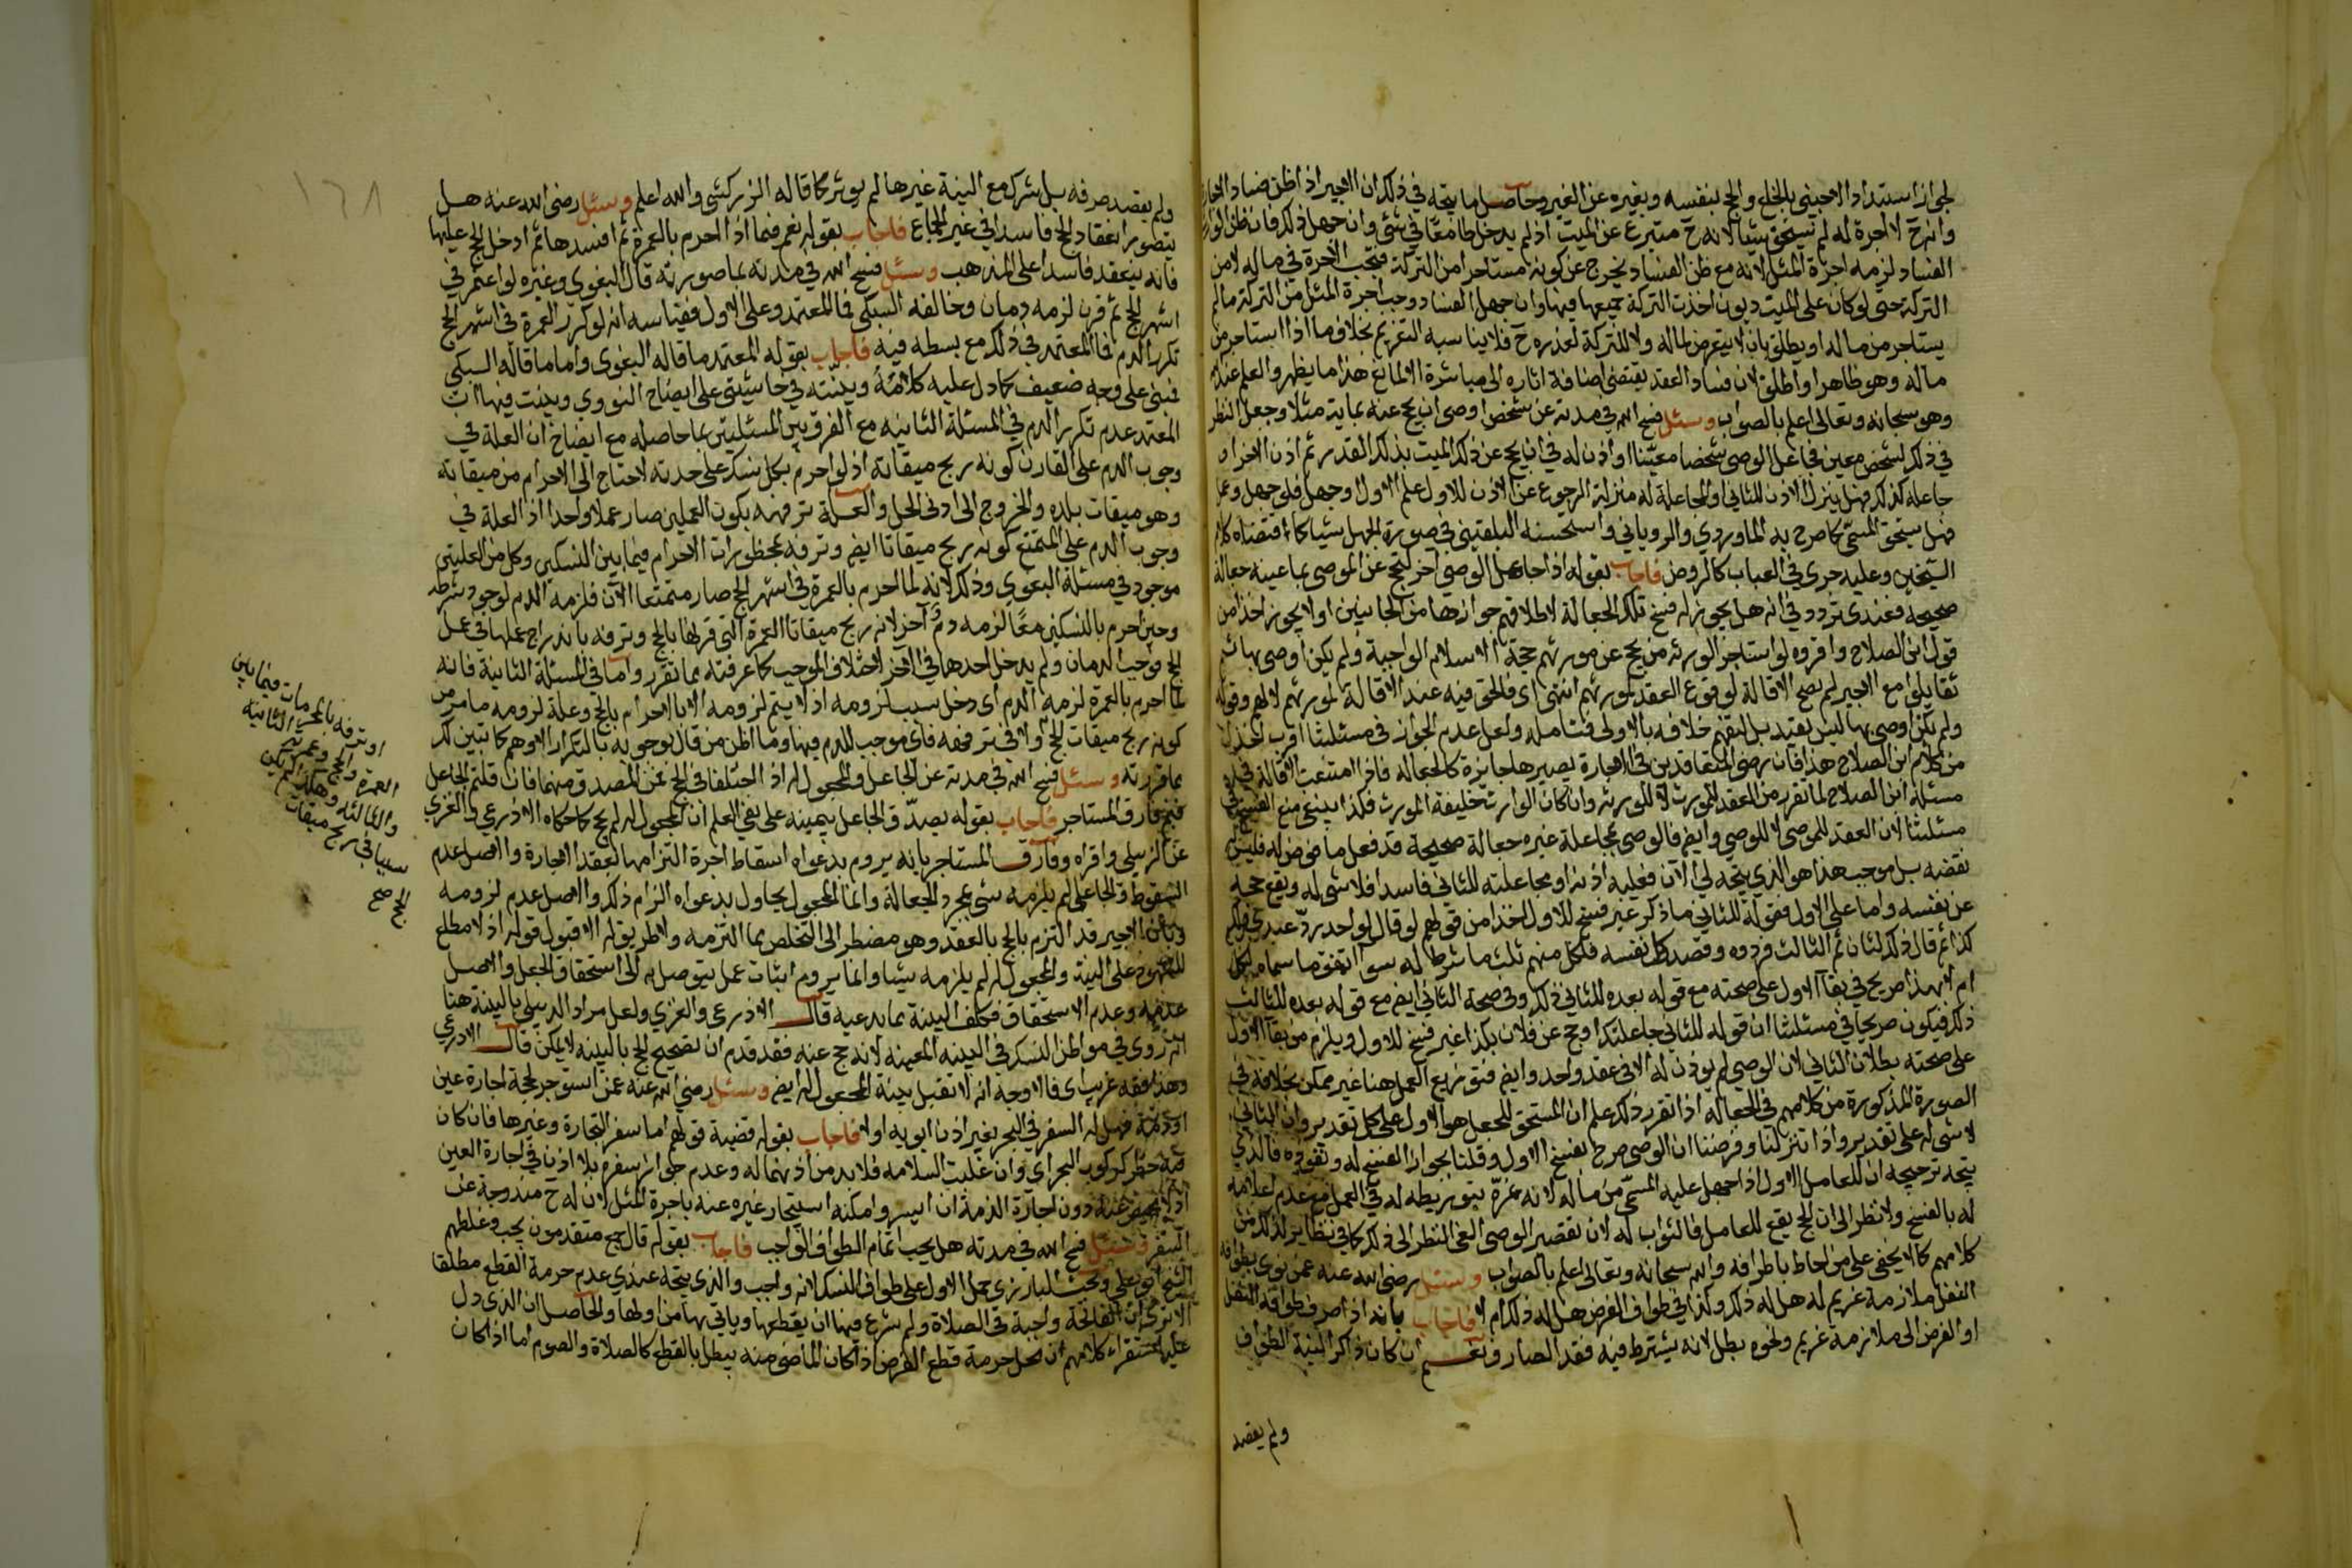 لجواز استبداد الاجنبي بالخلع والحج بنفسه وبغيره عن الغير وحاصل ما يتجه في ذلك ان الاجير اذا ظن فساد الاجارة
وانه ح لا اجرة له لم يستحق شيا لانه ح متبرع عن الميت اذ لم يدخل طامعا في شي وان جهل ذلك فان ظن الوارث
الفساد لزمه اجرة المثل لانه مع ظن الفساد يخرج عن كونه مستاجرا من التركة فتجب الاجرة في ماله لا من
التركة حتى لو كان على الميت ديون اخذت التركة جميعها فيها وان جهل الفساد وجب اجرة المثل من التركة ما لم
يستاجر من ماله او يطلق بان لا يتعرض لماله ولا للتركة لعذره ح فلا يناسبه التغريم بخلاف ما اذا استاجر من
ماله وهو ظاهر او اطلق لان فساد العقد يقتضي اضافة اثاره الى مباشره الا لمانع هذا ما يظهر والعلم عند الله
وهو سبحانه وتعالى اعلم بالصواب وسئل فسح الله في مدته عن شخص اوصى ان يحج عنه بماية مثلا وجعل النظر
في ذلك لشخص معين فجاعل الوصي شخصا معينا او اذن له في ان يحج عن ذلك الميت بذلك القدر ثم اذن لاخر او
جاعله كذلك فهل ينزل الاذن للثاني او المجاعلة له منزلة الرجوع عن الاذن للاول علم الاول او جهل فلو جهل وعمل
فهل يستحق المسمى كما صرح به الماوردي والروياني واستحسنه البلقيني في صورة الجهل شيا كما اقتضاه كلام
الشيخين وعليه جرى في العباب كالروض فاجاب بقوله اذا جاعل الوصي اخر ليحج عن الموصي بما عينه جعالة
صحيحة فعندي تردد في انه هل يجوز له فسخ تلك الجعالة لاطلاقهم جوازها من الجانبين او لا يجوز اخذا من
قول ابن الصلاح واقروه لو استاجر الورثة من يحج عن مورثهم حجة الاسلام الواجبة ولم يكن اوصى بها ثم
تقايلوا مع الاجير لم تصح الاقالة لوقوع العقد لمورثهم انتهى اي فالحق فيه عند الاقالة لمورثهم لا لهم وقوله
ولم يكن اوصى بها ليس بقيد بل لتفهم خلافه بالاولى فتامله ولعل عدم الجواز في مسئلتنا اقرب اخذا
من كلام ابن الصلاح هذا فان رضى المتعاقدين في الاجارة يصيرها جايزة كالجعالة فاذا امتنعت الاقالة في
مسئلة ابن الصلاح لما تقرر من العقد للمورث لا للورثة وان كان الوارث خليفة المورث فكذا ينبغي منع الفسخ في
مسئلتنا لان العقد للموصي لا للوصي وايضا فالوصي بمجاعلة غيره جعالة صحيحة قد فعل ما فوض له فليس له
نقضه بل موجب هذا هو الذي يتجه لي الان فعليه اذنه او مجاعلته للثاني فاسد افلا شي له ويقع حجه
عن نفسه واما على الاول فقوله للثاني ما ذكر غير فسخ للاول اخذا من قولهم لو قال لواحد رد عبدي ولك
كذا ثم قال ذلك لثان ثم لثالث فردوه وقصد كل نفسه فلكل منهم ثلث ما شرط له سوا اتفق ما سماه لكل
ام لا فهذا صريح في بقا الاول على صحته مع قوله بعده للثاني ذلك وفي صحة الثاني ايضا مع قوله بعده للثالث
ذلك فيكون صريحا في مسئلتنا ان قوله للثاني جاعلتك او حج عن فلان بكذا غير فسخ للاول ويلزم من بقا الاول
على صحته بطلان الثاني لان الوصي لم يوذن له الا في عقد واحد وايضا فتوزيع العمل هنا غير ممكن بخلافه في
الصورة المذكورة من كلامهم في الجعالة اذا تقرر ذلك علم ان المستحق للجعل هو الاول على كل تقدير وان الثاني
لا شي له على تقدير واذا تنزلنا وفرضنا ان الوصي صرح بفسخ الاول وقلنا بجواز الفسخ له ونفوذه فالذي
يتجه ترجيحه ان للعامل الاول اذا جهل عليه المسمى من ماله لانه غره بتوريطه له في العمل مع عدم اعلامه
له بالفسخ ولا نظر الى ان الحج يقع للعامل فالثواب له لان تقصير الوصي الغى النظر الى ذلك كما في نظاير لذلك من
كلامهم كما لا يخفى على من احاط باطرافه والله سبحانه وتعالى اعلم بالصواب وسئل رضي الله عنه عمن نوى بطوافه
النفل ملازمة غريم له هل له ذلك وكذا في طواف الفرض هل له ذلك ام لا فاجاب بانه اذا صرف طوافه النفل
او الفرض الى ملازمة غريم ونحوه بطل لانه يشترط فيه فقد الصارف نعم ان كان ذاكرا لنية الطواف
ولم يقصد
ولم يقصد صرفه بل شرك مع النية غيرها لم يوثر كما قاله الزركشي والله اعلم وسئل رضي الله عنه هل
يتصور انعقاد الحج فاسدا في غير الجماع فاجاب بقوله نعم فيما اذا احرم بالعمرة ثم افسدها ثم ادخل الحج عليها
فانه ينعقد فاسدا على المذهب وسئل فسح الله في مدته بما صورته قال البغوي وغيره لو اعتمر في
اشهر الحج ثم قرن لزمه دمان وخالفه السبكي فما المعتمد وعلى الاول فقياسه انه لو كرر العمرة في اشهر الحج
تكرر الدم فما المعتمد في ذلك مع بسطه فيه فاجاب بقوله المعتمد ما قاله البغوي واما ما قاله السبكي
فبني على وجه ضعيف كما دل عليه كلامه وبينته في حاشيتي على ايضاح النووي وبينت فيها ان
المعتمد عدم تكرر الدم في المسئلة الثانية مع الفرق بين المسئلتين بما حاصله مع ايضاح ان العلة في
وجوب الدم على القارن كونه ربح ميقاته اذ لو احرم بكل نسك على حدته لاحتاج الى الاحرام من ميقاته
وهو ميقات بلده والخروج الى ادنى الحل والعلة ترفهه بكون العملين صار عملا واحدا اذ العلة في
وجوب الدم على المتمتع كونه ربح ميقاتا ايضا وترفه بمحظورات الاحرام فيما بين النسكين وكل من العلتين
موجود في مسئلة البغوي وذلك لانه لما احرم بالعمرة في اشهر الحج صار متمتعا الان فلزمه الدم لوجود شرطه
وحين احرم بالنسكين معا لزمه دم آخر لانه ربح ميقاتا العمرة التي قرنها بالحج وترفه باندراج عملها في عمل
الحج فوجب الدمان ولم يدخل احدهما في الآخر لاختلاف الموجب كما عرفته مما تقرر واما في المسئلة الثانية فانه
لما احرم بالعمرة لزمه الدم اى دخل سبب لزومه اذ لا يتم لزومه الا بالاحرام بالحج وعلة لزومه ما مر من
كونه ربح ميقات الحج ولا في ترفهه فاي موجب للدم فيها وما اظن من قال بوجوبه بالتكرار الا وهم كما تبين لك
بما قررته وسئل فسح الله في مدته عن الجاعل والمجعول له اذا اختلفا في الحج عمن المصدق منهما فان قلتم الجاعل
فبم فارق المستاجر فاجاب بقوله يصدق الجاعل بيمينه على نفي العلم ان المجعول له لم يحج كما حكاه الاذرعي والغزي
عن الزبيلي واقراه وفارق المستاجر بانه يروم بدعواه اسقاط اجرة التزامها بعقد الاجارة والاصل عدم
السقوط والجاعل لم يلزمه شي بمجرد الجعالة وانما المجعول يحاول بدعواه الزام ذلك والاصل عدم لزومه
وبان الاجير قد التزم بالحج بالعقد وهو مضطر الى التخلص بما التزمه ولا طريق له الا قبول قوله اذ لا مطلع
للشهود على النية والمجعول له لم يلزمه شيا وانما يروم اثبات عمل يتوصل به الى استحقاق الجعل والاصل
عدمه وعدم الاستحقاق فكلف البينة بما يدعيه قال الاذرعي والغزي ولعل مراد الدبيلي بالبينة هنا
انه رؤى في مواطن النسك في السنة المعينة لانه حج عنه فقد قدم ان تصحيح الحج بالبينة لا يمكن قال الاذرعي
وهذا فقه غريب اى فالاوجه انه لا تقبل بينة المجعول له ايضا وسئل رضي الله عنه عمن استوجر لحجة اجارة عين
او ذمة فهل له السفر في البحر بغير اذن ابويه او لا فاجاب بقوله قضية قولهم اما سفر التجارة وغيرها فان كان
فيه خطر كركوب البحر اي وان غلبت السلامة فلا بد من اذنهما له وعدم جواز سفره بلا اذن في اجارة العين
دون اجارة الذمة ان ايسر وامكنه استيجار غيره عنه باجرة المثل لان له ح مندوحة عن
السفر وسئل فسح الله في مدته هل يجب اتمام الطواف الواجب فاجاب بقوله قال جمع متقدمون يجب وغلطهم
الشيخ ابو علي وبحث البارزي حمل الاول على طواف النسك لانه واجب والذي يتجه عندي عدم حرمة القطع مطلقا
الا ترى ان الفاتحة واجبة في الصلاة ولم شرع فيها ان يقطعها وياتي بها من اولها والحاصل ان الذي دل
عليه استقراء كلامهم ان محل حرمة قطع الفرض اذا كان الماضي منه يبطل بالقطع كالصلاة والصوم اما اذا كان
او ترفه بالمحرمات فيما بين
العمرة والحج وعمرته الثانية
والثالثة وهكذا لم يكن
سببا في ربح ميقات
الحج صح
١٦٨